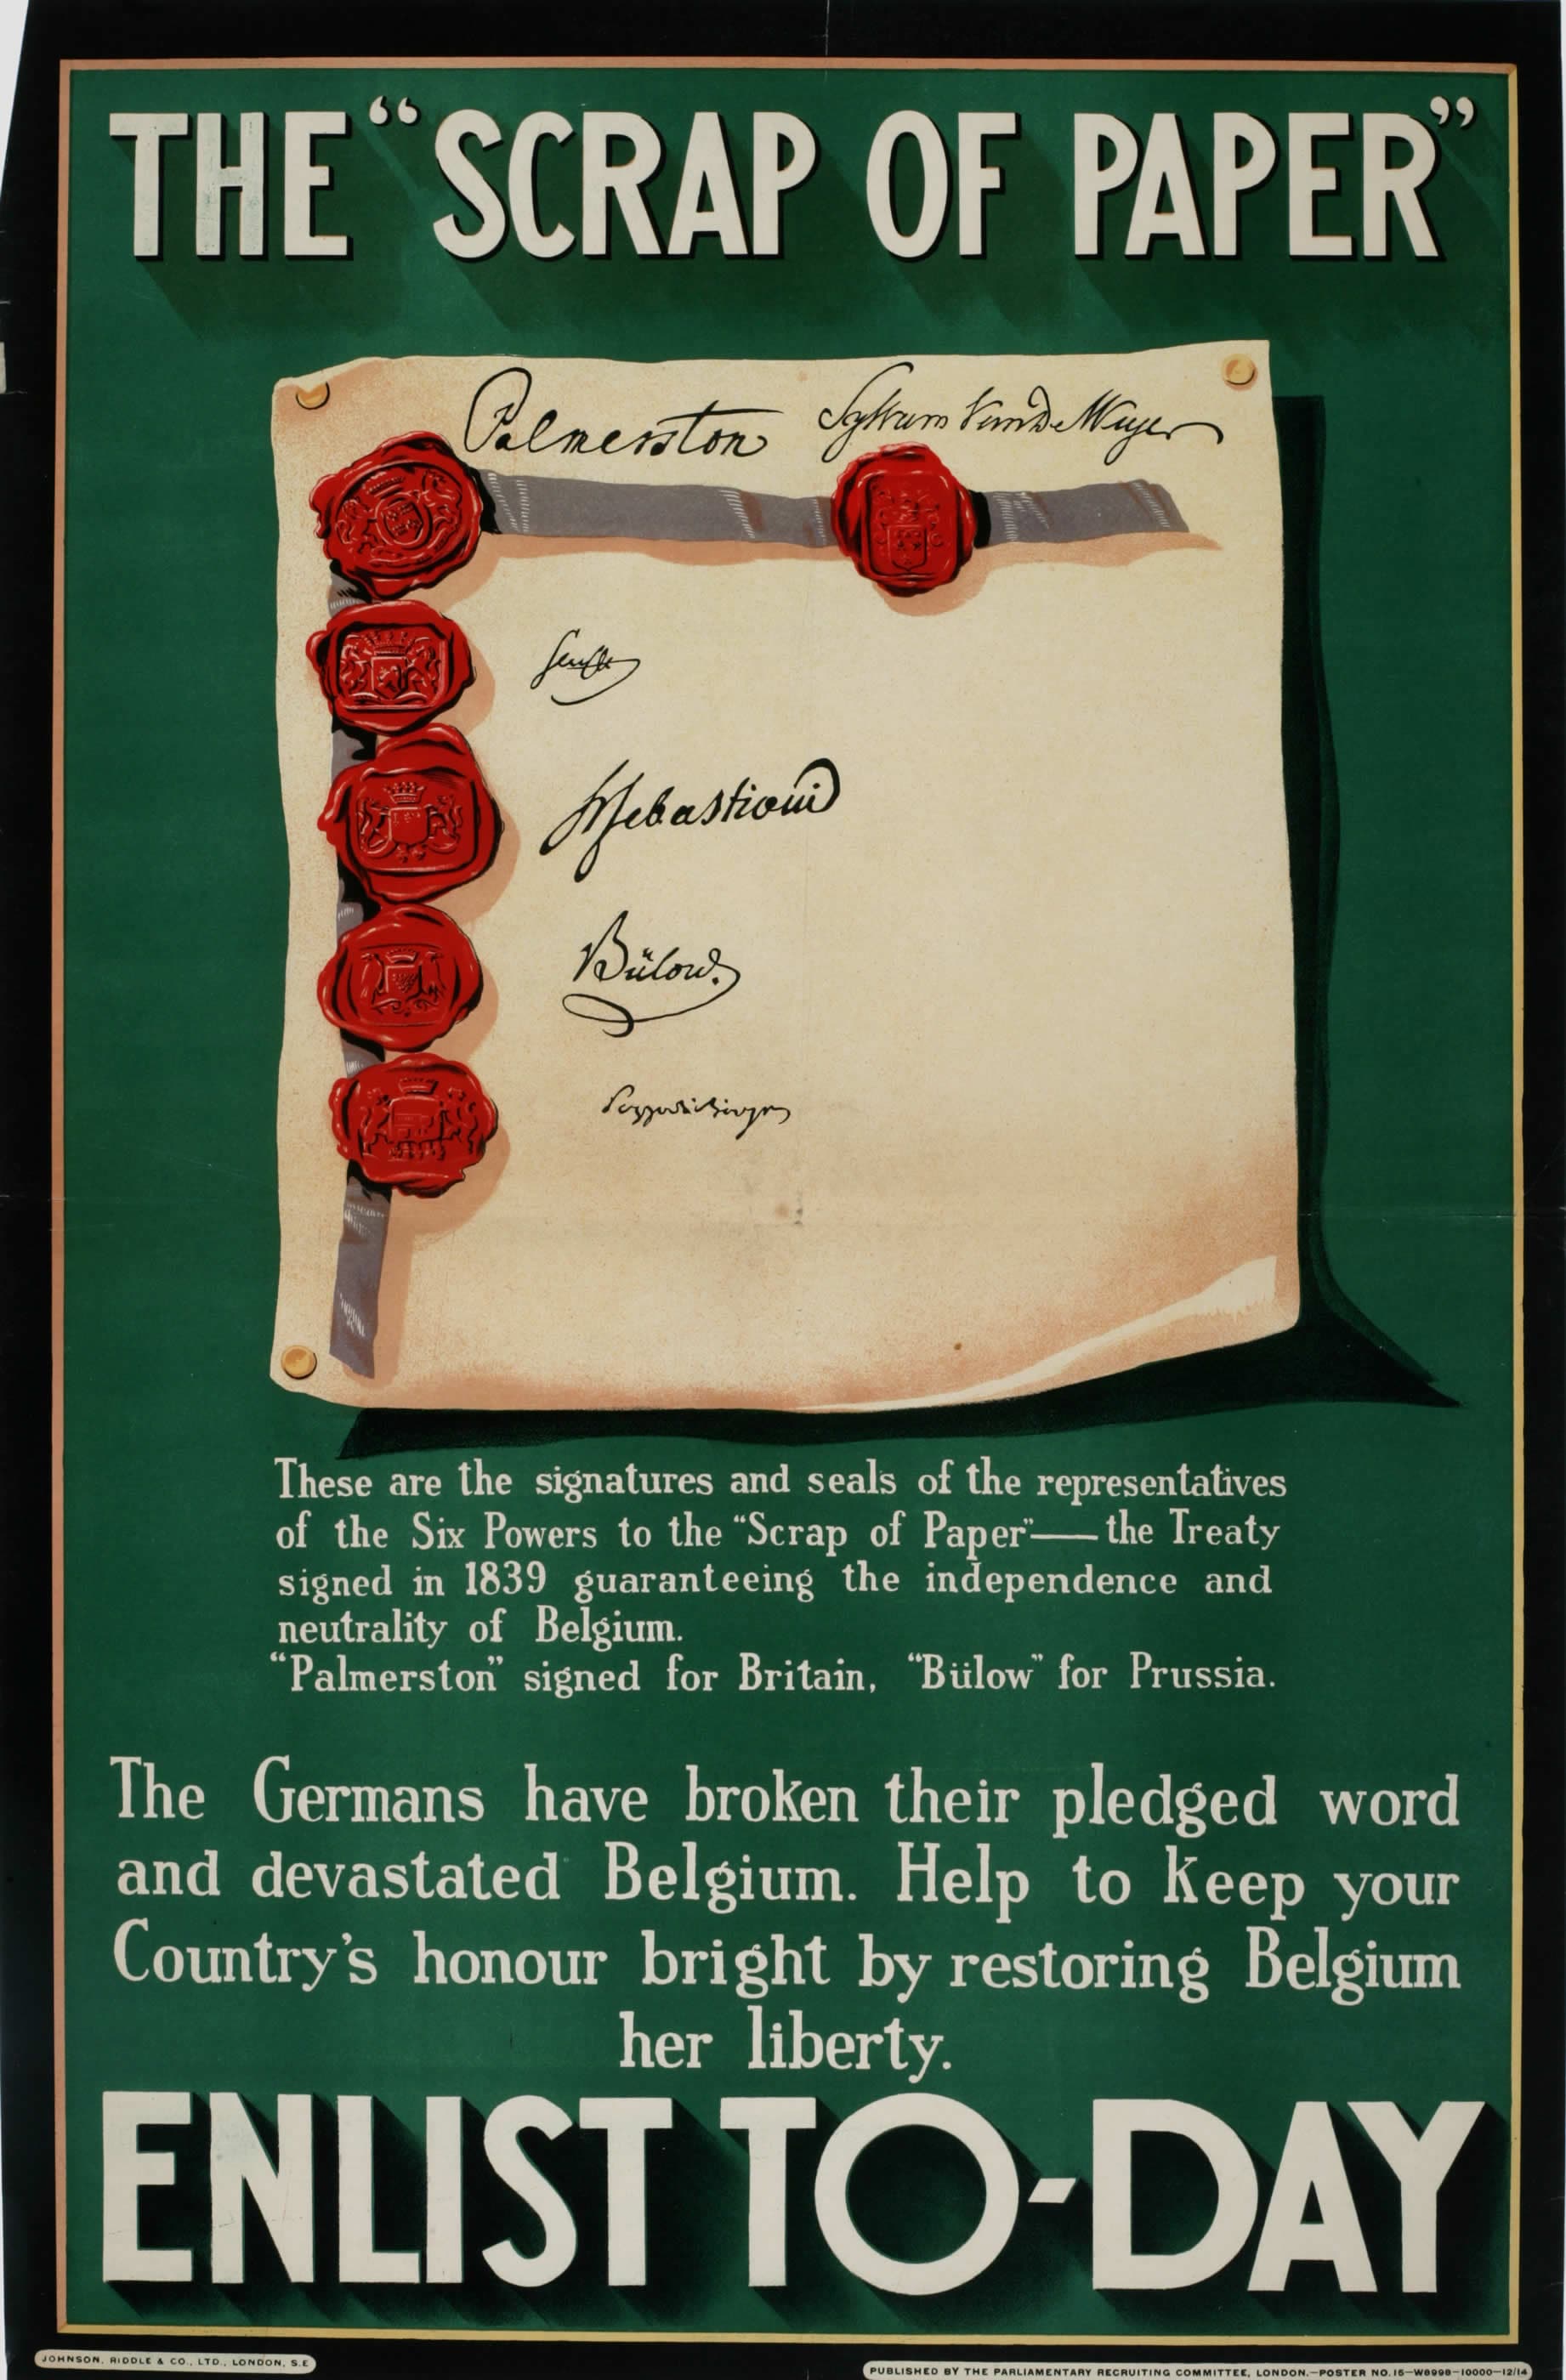 THE “SCRAP OF PAPER”
Palmerston Sylvain Van de Weyer
Senfft
H Sebastiani
Bülow.
Pozzo di Borgo
These are the signatures and seals of the representatives
of the Six Powers to the “Scrap of Paper”—the Treaty
signed in 1839 guaranteeing the independence and
neutrality of Belgium.
“Palmerston” signed for Britain, “Bülow” for Prussia.
The Germans have broken their pledged word
and devastated Belgium. Help to keep your
Country’s honour bright by restoring Belgium
her liberty.
ENLIST TO-DAY
JOHNSON, RIDDLE & CO., LTD., LONDON, S.E
PUBLISHED BY THE PARLIAMENTARY RECRUITING COMMITTEE, LONDON.—POSTER NO. 15—W8998—10000—12/14